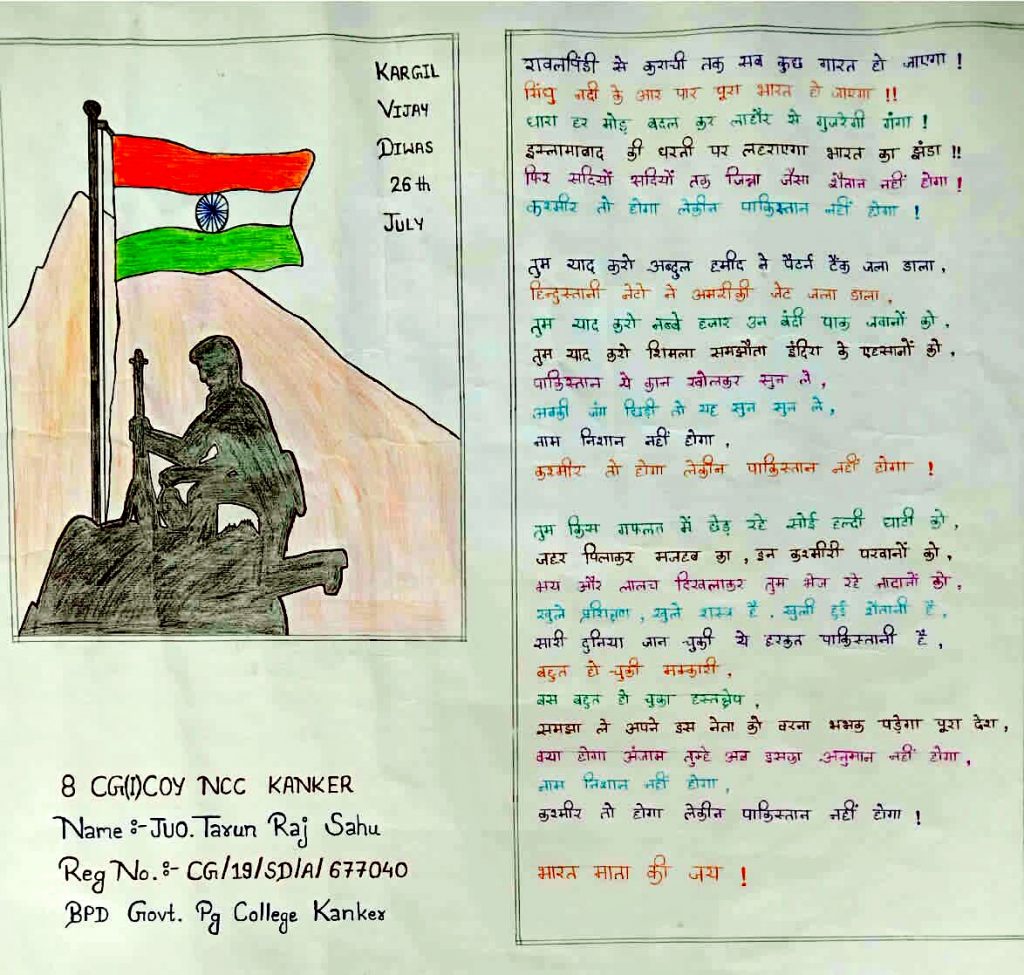 KARGIL
VIJAY
DIWAS
26th
JULY
8 CG(I)COY NCC KANKER
Name :- JUO. Tarun Raj Sahu
Reg No. :- CG/19/SD/A/677040
BPD Govt. Pg College Kanker
रावलपिंडी से कराची तक सब कुछ गारत हो जाएगा !
सिंधु नदी के आर पार पूरा भारत हो जाएगा !!
धारा हर मोड़ बदल कर लाहौर से गुजरेगी गंगा !
इस्लामाबाद की धरती पर लहराएगा भारत का झंडा !!
फिर सदियों सदियों तक जिन्ना जैसा शैतान नहीं होगा !
कश्मीर तो होगा लेकीन पाकिस्तान नहीं होगा !
तुम याद करो अब्दुल हमीद ने पैटर्न टैंक जला डाला ,
हिन्दुस्तानी नेटो ने अमरीकी जेट जला डाला ,
तुम याद करो नब्बे हजार उन बंदी पाक जवानों को ,
तुम याद करो शिमला समझौता इंदिरा के एहसानों को ,
पाकिस्तान ये कान खोलकर सुन ले ,
अबकी जंग छिड़ी तो यह सुन सुन ले ,
नाम निशान नहीं होगा ,
कश्मीर तो होगा लेकीन पाकिस्तान नहीं होगा !
तुम किस गफलत में छेड़ रहे सोई हल्दी घाटी को ,
जहर पिलाकर मजहब का , इन कश्मीरी परवानों को ,
भय और लालच दिखलाकर तुम भेज रहे नादानों को ,
खुले प्रशिक्षण , खुले शस्त्र है , खुली हुई शैतानी है ,
सारी दुनिया जान चुकी ये हरकत पाकिस्तानी है ,
बहुत हो चुकी मक्कारी ,
बस बहुत हो चुका हस्तक्षेप ,
समझा ले अपने इस नेता को वरना भभक पड़ेगा पूरा देश ,
क्या होगा अंजाम तुम्हे अब इसका अनुमान नहीं होगा ,
नाम निशान नहीं होगा ,
कश्मीर तो होगा लेकीन पाकिस्तान नहीं होगा !
भारत माता की जय !